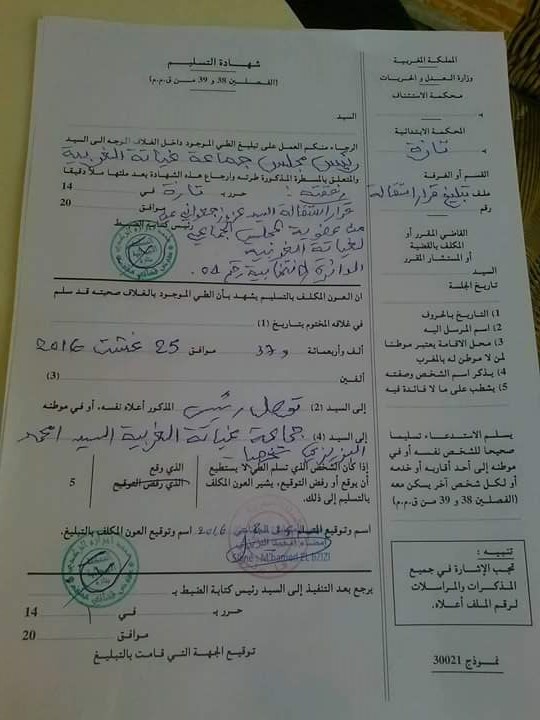 المملكة المغربية
وزارة العدل و الحريات
محكمة الاستئناف
بـ
المحكمة الابتدائية
بـ تازة
القسم أو الغرفة
ملف تبليغ قرار استقالة
رقم
القاضي المقرر أو
المكلف بالقضية
أو المستشار المقرر
السيد
تاريخ الجلسة
1) التاريخ بالحروف
2) اسم المرسل اليه
3) محل الاقامة يعتبر موطنا
لمن لا موطن له بالمغرب
4) يذكر اسم الشخص وصفته
5) يشطب على ما لا فائدة فيه
يسلم الاستدعاء تسليما
صحيحا للشخص نفسه أو في
موطنه إلى أحد أقاربه أو خدمه
أو لكل شخص آخر يسكن معه
(الفصلين 38 و 39 من ق.م.م)
تنبيه :
تجب الإشارة في جميع
المذكرات والمراسلات
لرقم الملف أعلاه.
نموذج 30021
شهادة التسليم
(الفصلين 38 و 39 من ق.م.م)
السيد
الرجاء منكم العمل على تبليغ الطي الموجود داخل الغلاف الموجه الى السيد
رئيس مجلس جماعة غياتة الغربية
والمتعلق بالمسطرة المذكورة طرته وارجاع هذه الشهادة بعد ملئها ملأ دقيقا
رفقته : حرر بـ تازة في 14
قرار استقالة السيد موافق 20
رئيس كتابة الضبط
من عضوية المجلس الجماعي
لغياتة الغربية
الدائرة الانتخابية رقم 05
ان العون المكلف بالتسليم يشهد بأن الطي الموجود بالغلاف صحبته قد سلم
في غلافه المختوم بتاريخ (1)
ألف وأربعمائة و 37 موافق 25 غشت 2016
ألفين (3)
إلى السيد (2) توصل رئيس المذكور أعلاه نفسه، أو في موطنه
إلى السيد (4) جماعة غياتة الغربية السيد امحمد
اليزيزي شخصيا
إذا كان الشخص الذي تسلم الطي لا يستطيع
أن يوقع أو رفض التوقيع، يشير العون المكلف
بالتسليم إلى ذلك.
الذي وقع
الذي رفض التوقيع
5
اسم وتوقيع المتسلم 2016 اسم وتوقيع العون المكلف بالتبليغ.
Signé : M'hamed EL IZIZI
يرجع بعد التنفيذ إلى السيد رئيس كتابة الضبط بـ
حرر بـ في 14
موافق 20
توقيع الجهة التي قامت بالتبليغ